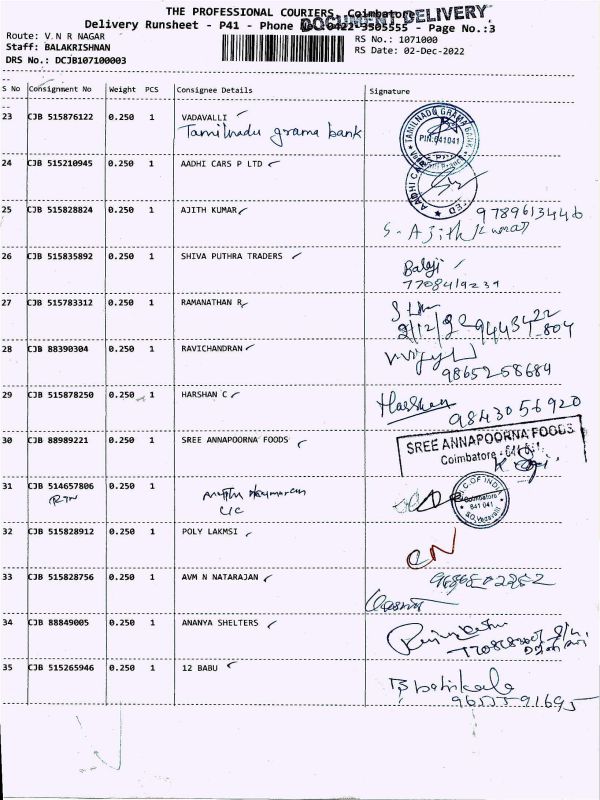 THE PROFESSIONAL COURIERS, Coimbatore
DOCUMENT DELIVERY
Delivery Runsheet - P41 - Phone No. 0422-3505555 - Page No.:3
Route: V.N R NAGAR
RS No.: 1071000
Staff: BALAKRISHNAN
RS Date: 02-Dec-2022
DRS No.: DCJB107100003
S No Consignment No Weight PCS Consignee Details Signature
23 CJB 515876122 0.250 1 VADAVALLI
Tamilnadu grama bank
TAMILNADU GRAMA BANK
PIN:641041
24 CJB 515210945 0.250 1 AADHI CARS P LTD
25 CJB 515828824 0.250 1 AJITH KUMAR
9789613446
S. Ajith Kumar
26 CJB 515835892 0.250 1 SHIVA PUTHRA TRADERS
Balaji
7708419239
27 CJB 515783312 0.250 1 RAMANATHAN R
28 CJB 88390304 0.250 1 RAVICHANDRAN
9865258684
29 CJB 515878250 0.250 1 HARSHAN C
Harshan 9843056920
30 CJB 88989221 0.250 1 SREE ANNAPOORNA FOODS
SREE ANNAPOORNA FOODS
Coimbatore
31 CJB 514657806 0.250 1
RTN
LIC
Coimbatore
641 041
32 CJB 515828912 0.250 1 POLY LAKMSI
CN
33 CJB 515828756 0.250 1 AVM N NATARAJAN
34 CJB 88849005 0.250 1 ANANYA SHELTERS
35 CJB 515265946 0.250 1 12 BABU